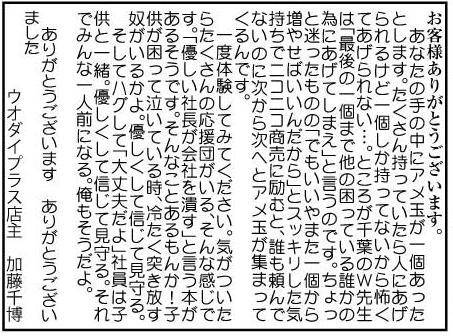 お客様ありがとうございます。
あなたの手の中にアメ玉が一個あった
とします。たくさん持っていたら人にあげ
られるけど一個しか持ってないから怖く
てあげられない…。ところが千葉のW先生
は「最後の一個まで他の困っている誰かの
為にあげてしまえ」と言うのです。ちょっ
と迷ったものの「でもいいやまた一個から
増やせばいいんだから」とスッキリした気
持ちでニコニコ商売に励むと、誰も頼んで
ないのに次から次へとアメ玉が集まって
くるんです。
一度体験してみてください。気がついた
らたくさんの応援団がいる、そんな感じで
す。「優しい社長が会社を潰す」と言う本が
あるそうです。そんなことあるもんか!子
供が困って泣いている時、冷たく突き放す
奴がいるかよ。優しくして信じて見守る。
そしてハグして「大丈夫だよ」社員は子
供と一緒。優しくして信じて見守る。それ
でみんな一人前になる。俺もそうだよ。
ありがとうございます ありがとうござい
ました
ウオダイプラス店主 加藤千博